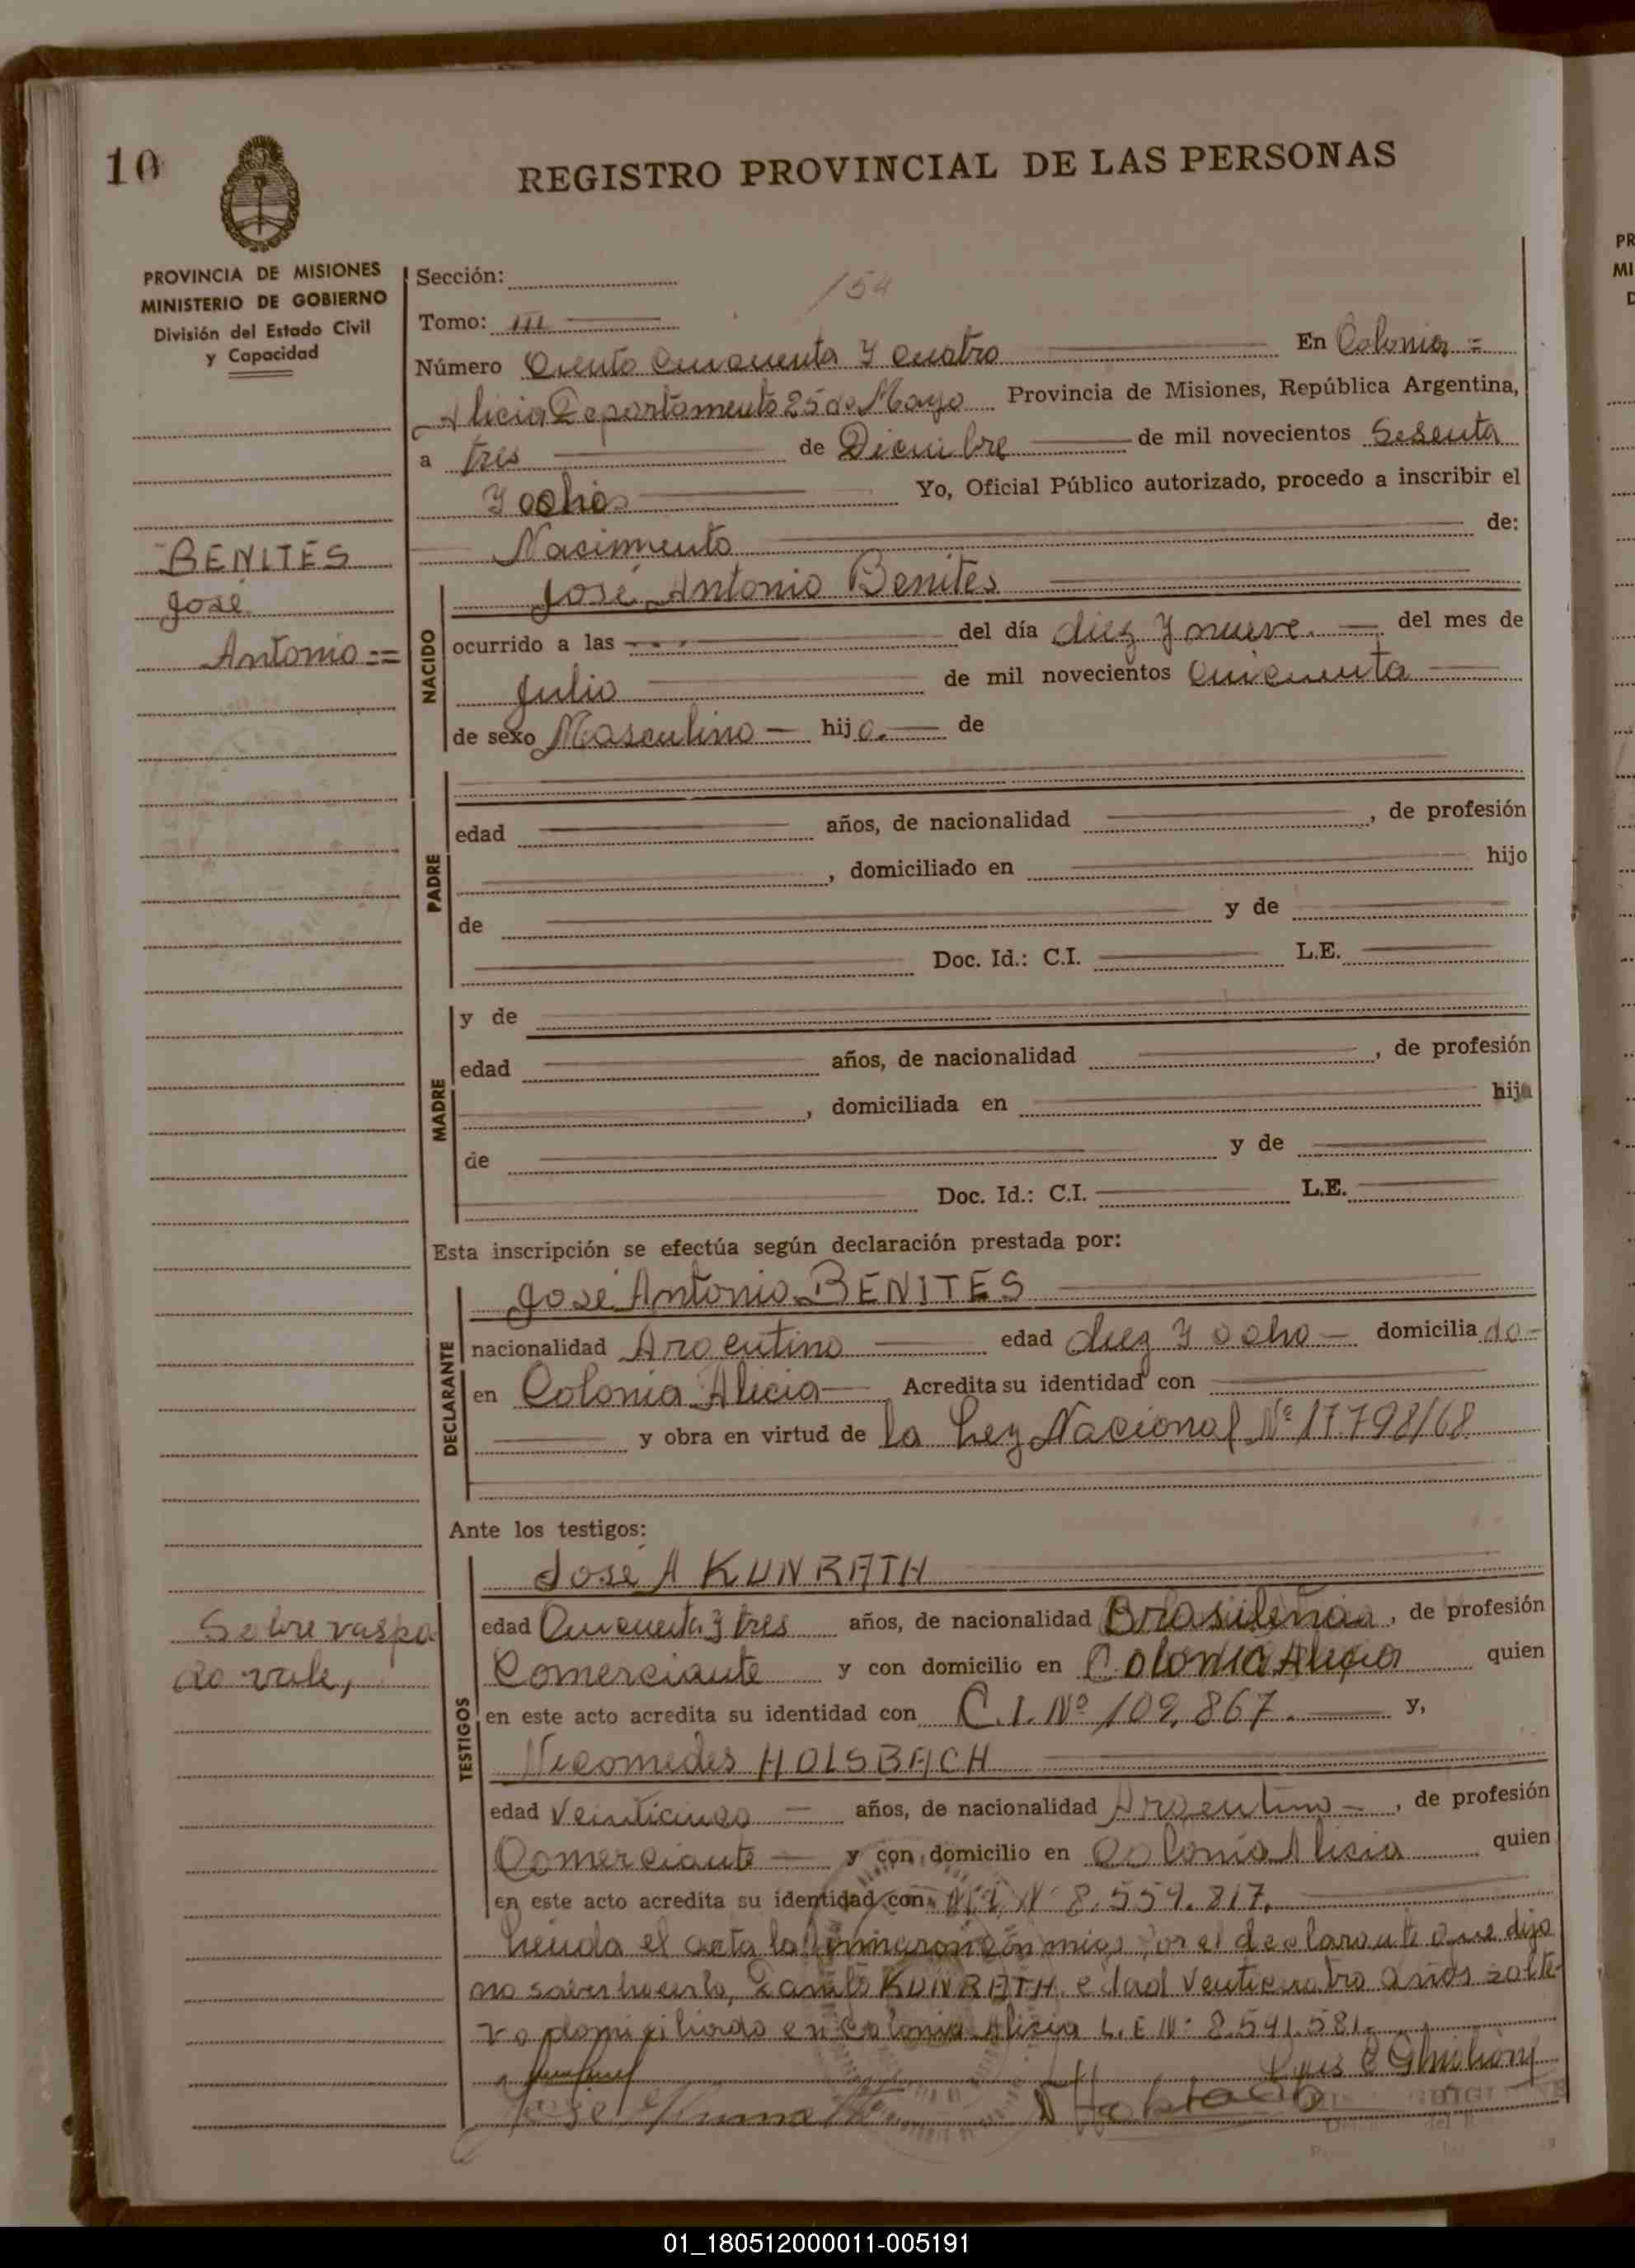 10
REGISTRO PROVINCIAL DE LAS PERSONAS
PROVINCIA DE MISIONES
MINISTERIO DE GOBIERNO
División del Estado Civil
y Capacidad
BENITES
José
Antonio ==
Sobre raspa
do vale,
Sección:
154
Tomo: III
Número Ciento Cincuenta y Cuatro En Colonia =
Alicia Departamento 25 de Mayo Provincia de Misiones, República Argentina,
a tres de Diciembre de mil novecientos Sesenta
y ocho Yo, Oficial Público autorizado, procedo a inscribir el
Nacimiento de:
NACIDO
José Antonio Benites
ocurrido a las del día diez y nueve. del mes de
Julio de mil novecientos Cincuenta
de sexo Masculino hijo. de
PADRE
edad años, de nacionalidad , de profesión
, domiciliado en hijo
de y de
Doc. Id.: C.I. L.E.
MADRE
y de
edad años, de nacionalidad , de profesión
, domiciliada en hija
de y de
Doc. Id.: C.I. L.E.
Esta inscripción se efectúa según declaración prestada por:
DECLARANTE
José Antonio BENITES
nacionalidad Argentino edad diez y ocho domicilia do
en Colonia Alicia Acredita su identidad con
y obra en virtud de la Ley Nacional Nº 17.798/68
Ante los testigos:
TESTIGOS
José A KUNRATH
edad Cincuenta y tres años, de nacionalidad Brasileña, de profesión
Comerciante y con domicilio en Colonia Alicia quien
en este acto acredita su identidad con C.I. Nº 109,867. y,
Nicomedes HOLSBACH
edad Veinticinco años, de nacionalidad Argentino, de profesión
Comerciante y con domicilio en Colonia Alicia quien
en este acto acredita su identidad con M.I. Nº 8.559.817,
Leída el acta la firmaron con migo, por el declarante que dijo
no saber hacerlo, KUNRATH, edad Veinticuatro años solte-
ro domiciliado en Colonia Alicia L.E Nº 8.541.581.
01_180512000011-005191